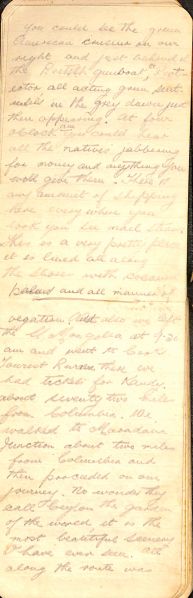 You could see the
American cruiser on our
right and just behind it
the British gunboat
all acting
in the grey dawn just
then appearing. At four
oclock am you could hear
all the natives jabbering
for money and anything you
would give them. There is
any amount of shipping
here every where you
look you see mail
This is a very pretty place
it is lined all along
the shores with cocoanut
palms and all manner of
vegation. We left
the at 9-30
am and went to Cooks
Tourist where we
had tickets for Kandy.
about seventy two miles
from Columbia. We
walked to Maradana
Junction about two miles
from Columbia and
then proceeded on our
journey. No wonder they
call Ceylon the garden
of the world it is the
most beautiful scenery
I have ever seen. All
along the route was